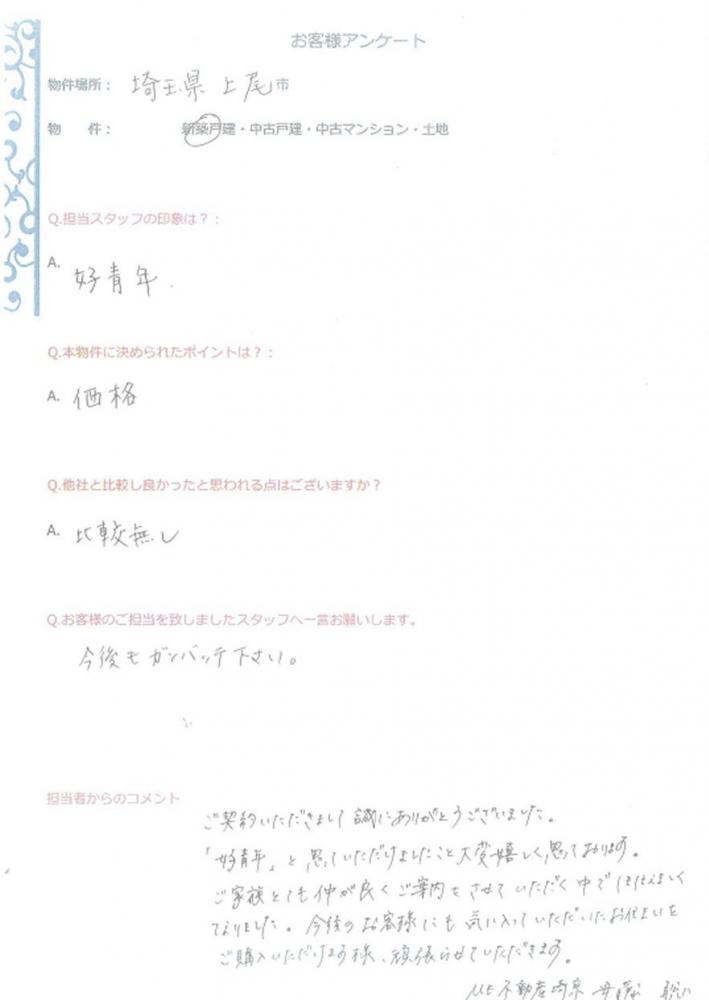 お客様アンケート
物件場所： 埼玉県 上尾市
物　　件： 新築戸建・中古戸建・中古マンション・土地
Q.担当スタッフの印象は？：
A. 好青年.
Q.本物件に決められたポイントは？：
A. 価格
Q.他社と比較し良かったと思われる点はございますか？
A. 比較無し
Q.お客様のご担当を致しましたスタッフへ一言お願いします。
今後もガンバッテ下さい。
担当者からのコメント
ご契約いただきまして誠にありがとうございました。
「好青年」と思っていただけましたこと大変嬉しく思っております。
ご家族とても仲が良くご案内をさせていただく中で
ておりました。今後のお客様にも気に入っていただいたお住まいを
ご購入いただけます様、頑張らせていただきます。
不動産埼京